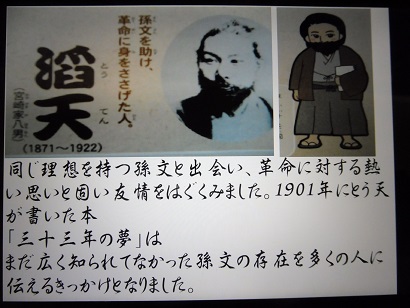 孫文を助け、
革命に身をささげた人。
滔天
とうてん
(宮崎家八男)
(1871〜1922)
同じ理想を持つ孫文と出会い、革命に対する熱
い思いと固い友情をはぐくみました。1901年にとう天
が書いた本
「三十三年の夢」は
まだ広く知られてなかった孫文の存在を多くの人に
伝えるきっかけとなりました。